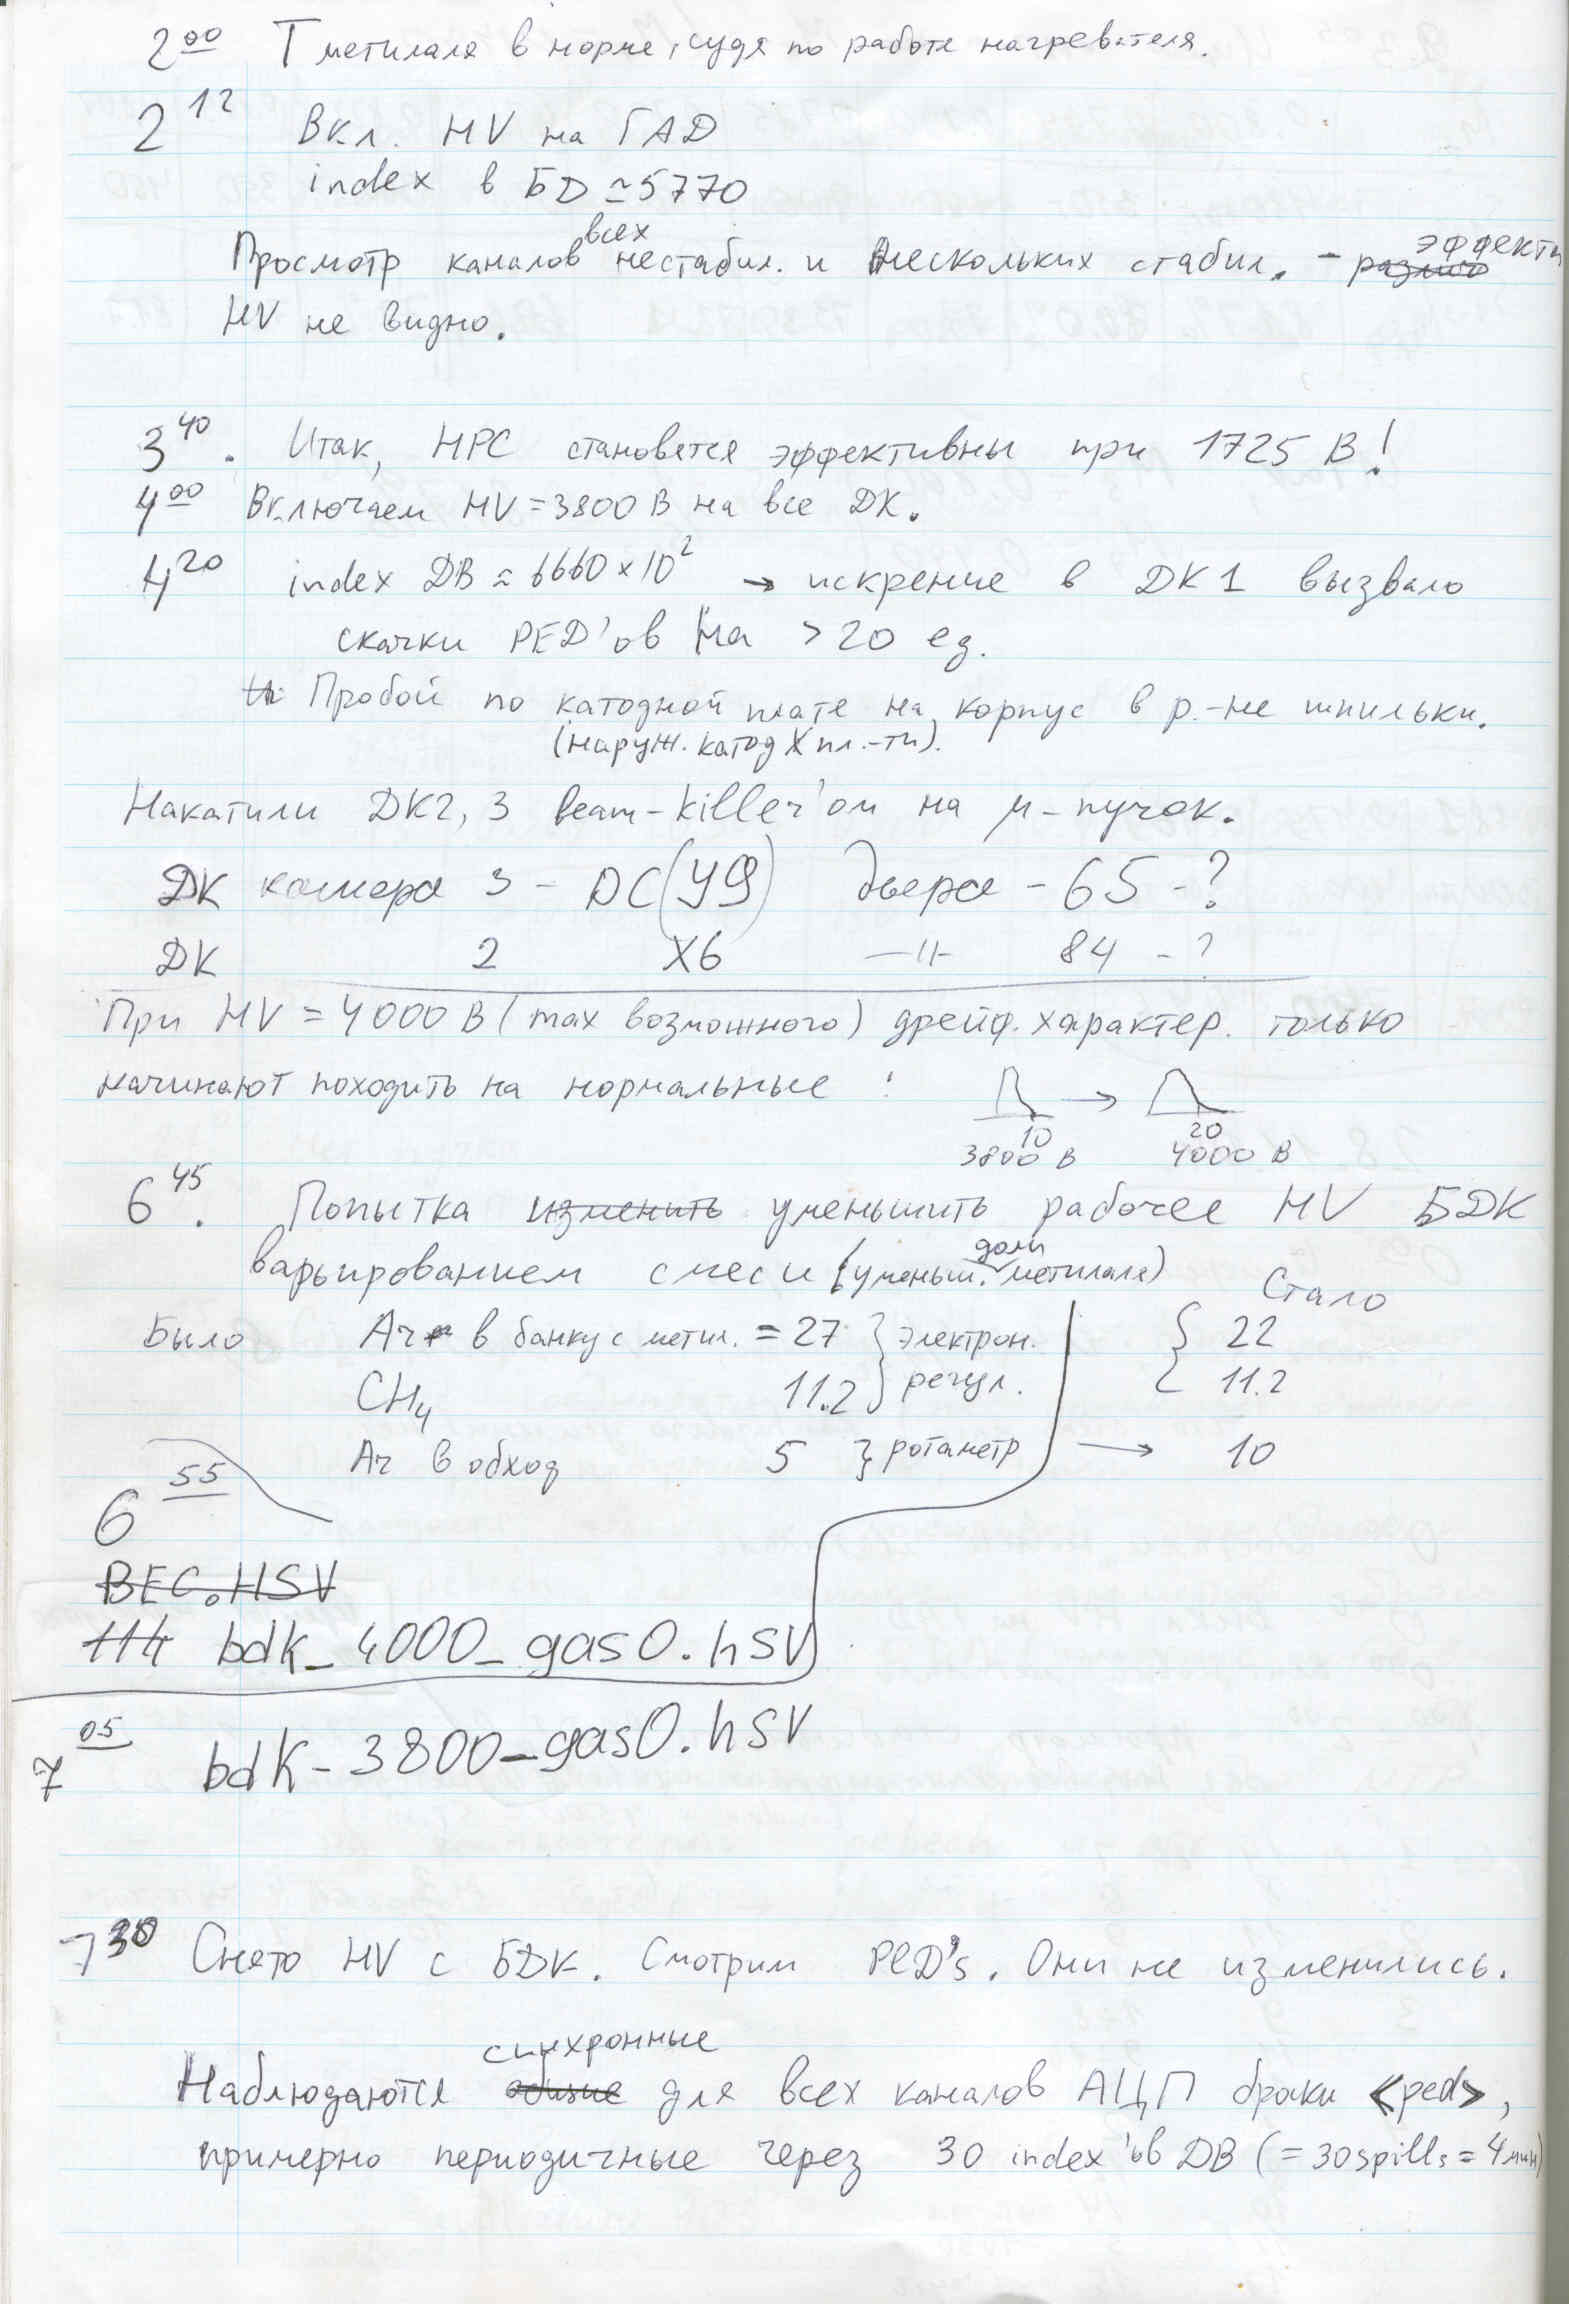 2 00 Т метилаля в норме, судя по работе нагревателя.
2 12 Вкл. HV на ГАД
index в БД ≃ 5770
всех эффекты
Просмотр каналов нестабил. и нескольких стабил. -
HV не видно.
3 40. Итак, НРС становятся эффективны при 1725 В!
4 00 Включаем HV = 3800 В на все ДК.
4 20 index DB ≈ 6660 × 10² → искрение в ДК1 вызвало
скачки PED'ов на > 20 ед.
Пробой по катодной плате на корпус в р.-не шпильки.
(наруж. катод X пл.-ти).
Накатили ДК2, 3 beam-killer'ом на μ-пучок.
ДК камера 3 - DC(Y9) дыра - 65 - ?
ДК 2 X6 —"— 84 - ?
При HV = 4000 В (max возможного) дрейф. характер. только
начинают походить на нормальные :
10 → 20
3800 В 4000 В
6 45. Попытка изменить уменьшить рабочее HV БДК
доли
варьированием смеси (уменьш. метилаля)
Стало
Было Ar в банку с метил. = 27 } электрон. { 22
CH4 11.2 } регул. { 11.2
Ar в обход 5 } ротаметр → 10
6 55
BEC.HSV
114 bdk_4000_gas0.hsv
7 05 bdk-3800-gas0.hsv
7 30 Снято HV с БДК. Смотрим PED's. Они не изменились.
синхронные
Наблюдаются общие для всех каналов АЦП броски <ped>,
примерно периодичные через 30 index'ов DB (= 30 spills = 4 мин)